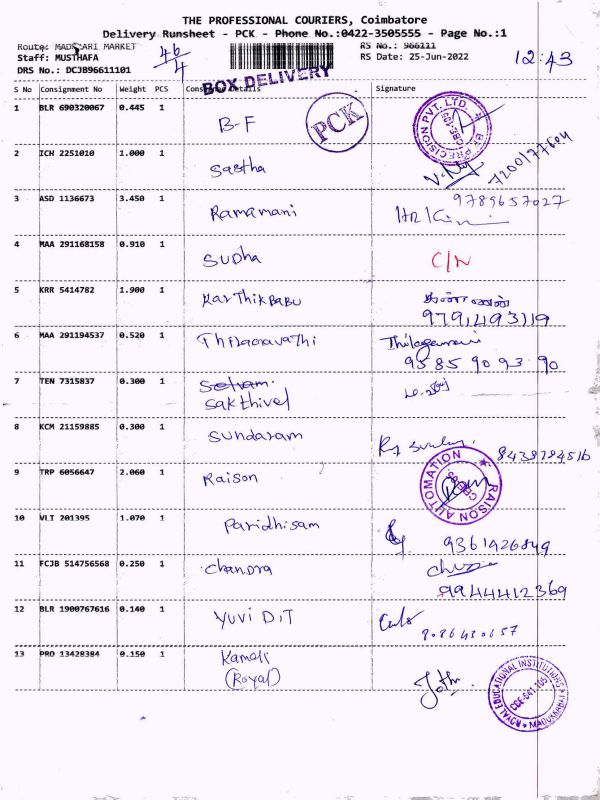 THE PROFESSIONAL COURIERS, Coimbatore
Delivery Runsheet - PCK - Phone No.:0422-3505555 - Page No.:1
Route: MADKARI MARKET 46/4 RS No.: 966111
Staff: MUSTHAFA RS Date: 25-Jun-2022 12:43
DRS No.: DCJB96611101
BOX DELIVERY
S No Consignment No Weight PCS Consignee Details Signature
1 BLR 690320067 0.445 1 B-F
PCK
BY PRECISION PVT. LTD.
CBE-105
2 ICH 2251010 1.000 1 Sastha
7200177604
3 ASD 1136673 3.450 1 Ramamani 9789657027
4 MAA 291168158 0.910 1 Sudha C/N
5 KRR 5414782 1.900 1 Karthikbabu
9791493119
6 MAA 291194537 0.520 1 Thilagavathi Thilagavai
95 85 90 93 90
7 TEN 7315837 0.300 1 Selvam
Sakthivel
8 KCM 21159885 0.300 1 Sundaram
8438784516
9 TRP 6056647 2.060 1 Raison
RAISON AUTOMATION
10 VLT 201395 1.070 1 Paridhisam
9361426849
11 FCJB 514756568 0.250 1 Chandra
9944412369
12 BLR 1900767616 0.140 1 Yuvi D.T
9086430657
13 PRO 13428384 0.150 1 Kamali
(Royal) Jothi
ROYAL EDUCATIONAL INSTITUTIONS
CBE-641 105
MADUKKARAI